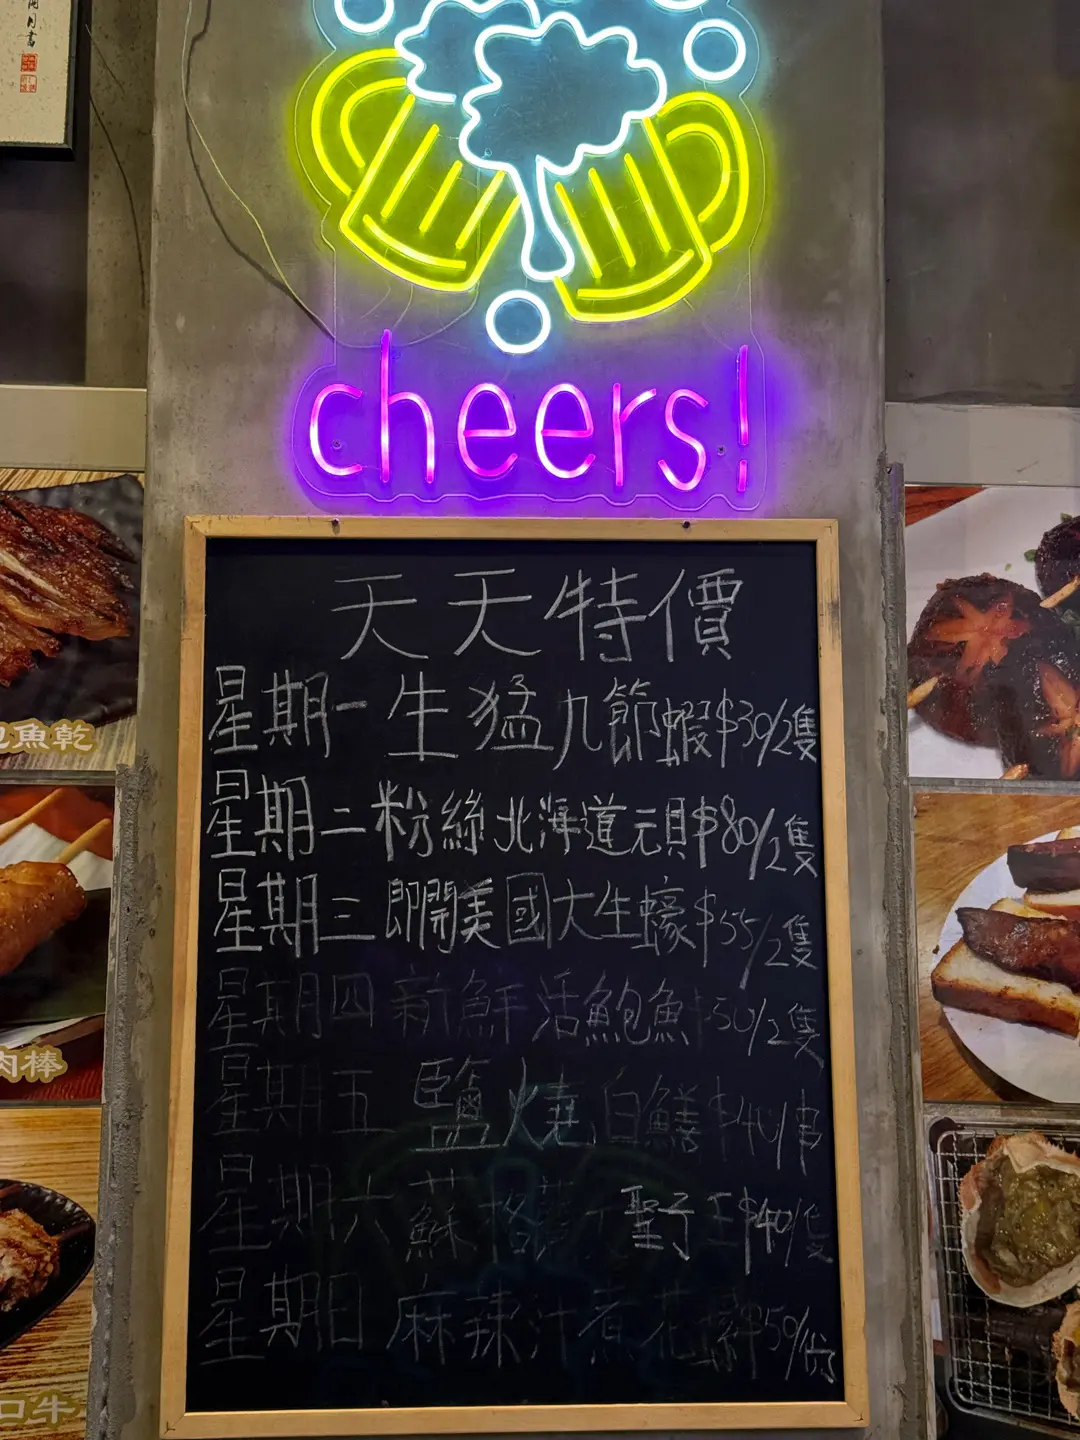 cheers!
天天特價
星期一生猛九節蝦$39/2隻
星期二粉絲北海道元貝$80/2隻
星期三即開美國大生蠔$55/2隻
星期四新鮮活鮑魚$50/2隻
星期五鹽燒白鱔$40/串
星期六蘇格蘭 聖子王$40/隻
星期日麻辣汁煮花螺$50/份
魚乾
肉棒
口牛